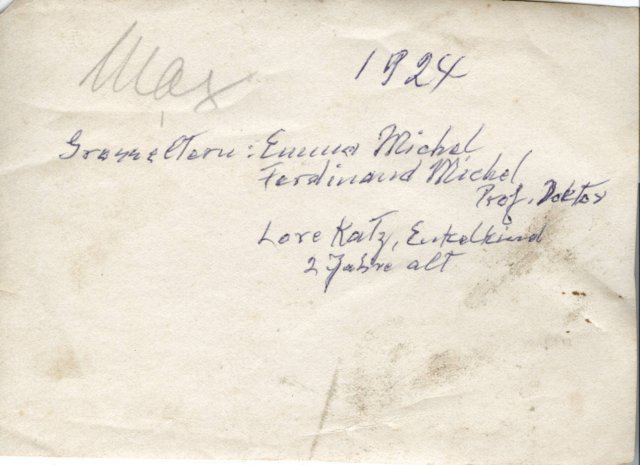 Max
1924
Grosseltern: Emma Michel
Ferdinand Michel
Prof. Doktor
Lore Katz, Enkelkind
2 Jahre alt